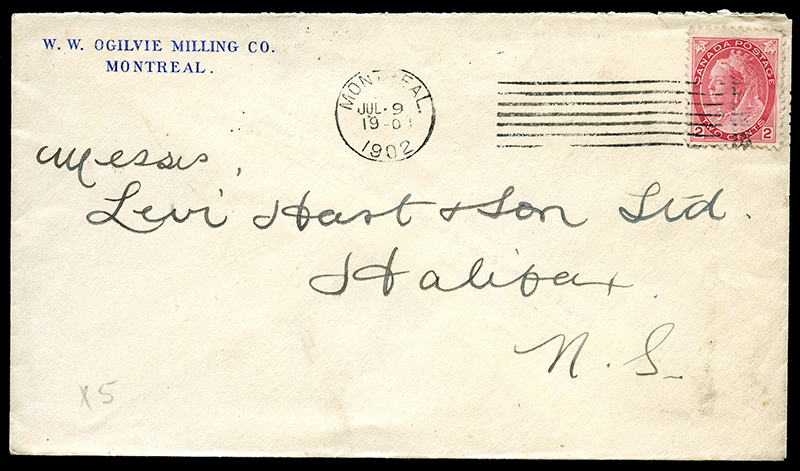 W. W. OGILVIE MILLING CO.
MONTREAL.
MONTREAL.
JUL 9
1902
CANADA POSTAGE
TWO CENTS
2 2
Messrs,
Levi Hart & Son Ltd.
Halifax
N. S.
X5